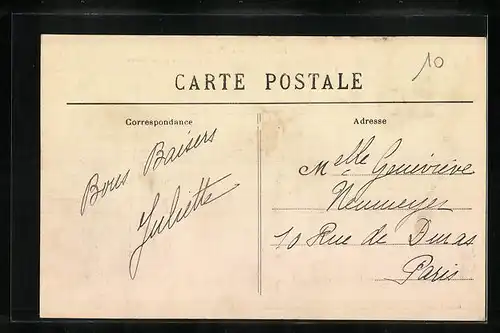 10
CARTE POSTALE
Correspondance
Adresse
Bons Baisers
Juliette
Melle Geneviève
Neumeyer
10 Rue de Duras
Paris